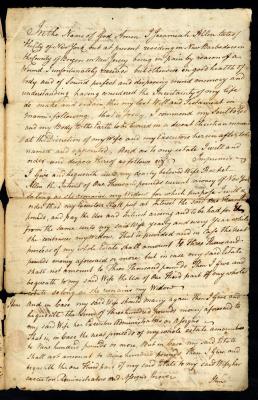 In the Name of God Amen. I Jeremiah Allen late of
the City of New York, but at present residing in New Barbadoes in
the County of Bergen in New Jersey being in pain by reason of a
wound I unfortunately received but otherwise in good health of
body and of sound perfect and disposing mind memory and
understanding having considered the Uncertainty of my life
do make and ordain this my last Will and Testament in
manner following, that is to say, I commend my Soul to God
and my Body to the Earth to be buried in a decent Christian manner
at the Direction of my Wife and my Executors herein after to be
named and appointed. And as to my estate I will and
order and dispose thereof as follows viz Imprimis
I Give and bequeath unto my dearly beloved Wife Rachel
Allen the Interest of One Thousand pounds current money of New York
as long as she remains my Widow for which purpose I will and
order that my Executors shall put at Interest the said One Thousand
pounds, and pay the Use and Interest arising and to be had
from the same unto my said Wife yearly and every year while
she continues my Widow. That is provided and in Case the neat
produce of my whole Estate shall amount to three thousand
pounds money aforesaid or more but in case my said Estate
shall not amount to Three Thousand pounds, then I give and
bequeath to my said Wife the Use of One Third part of my whole
Estate as long as she remains my Widow
Item And in Case my said Wife should marry again then I Give and
bequeath the Sum of three Hundred Pounds money aforesaid to
my said Wife her Executors Administrators or assigns
That is, in Case the neat produce of my whole estate amounts
to Nine hundred pounds or more But in Case my said Estate
shall not amount to nine hundred pounds, Then I Give and
bequeath the one third part of my said Estate to my said Wife her
Executors Administrators and Assigns forever
Item